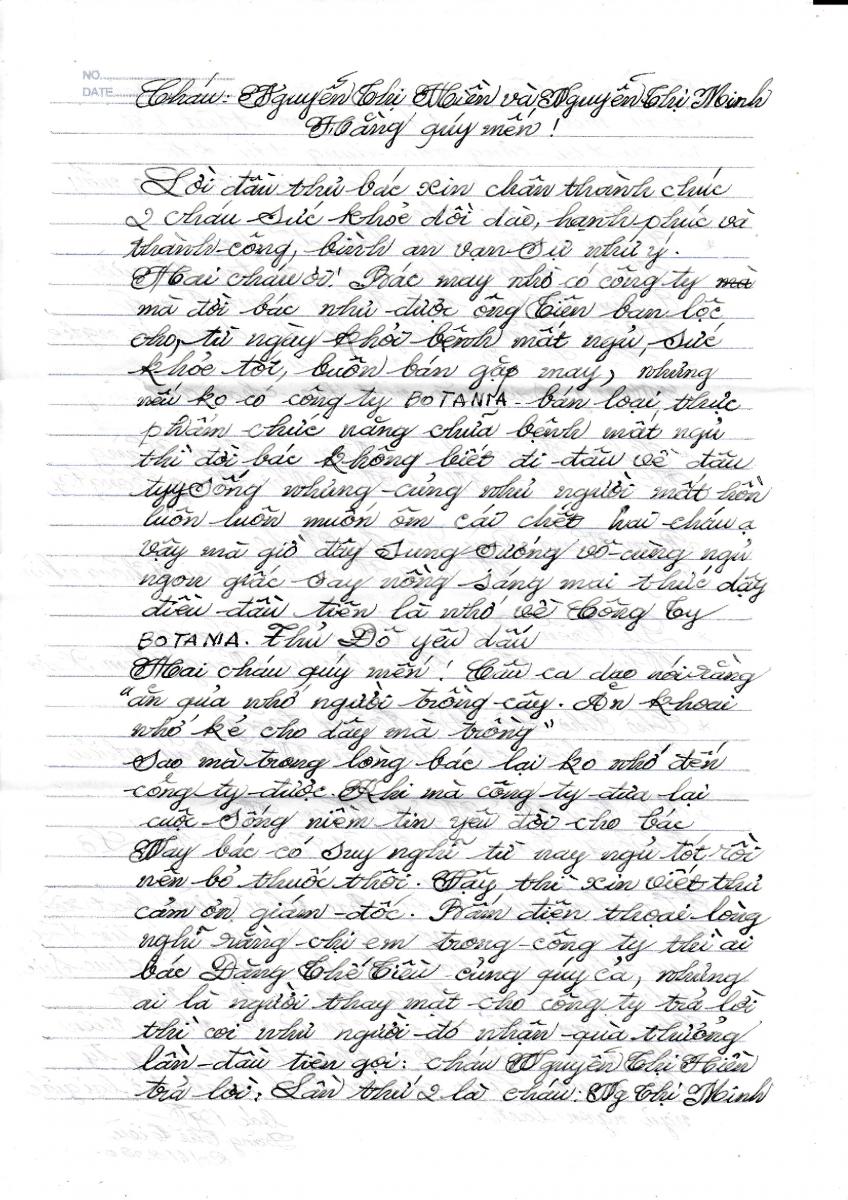 NO.
DATE
Cháu: Nguyễn Thị Hiền và Nguyễn Thị Minh
Hằng qúy mến!
Lời đầu thư bác xin chân thành chúc
2 cháu sức khỏe dồi dào, hạnh phúc và
thành công, bình an vạn sự như ý.
Hai cháu ơi! Bác may nhờ có công ty mà
mà đời bác như được ông Tiên ban lộc
cho, từ ngày khỏi bệnh mất ngủ, sức
khỏe tốt, buôn bán gặp may, nhưng
nếu ko có công ty BOTANIA bán loại thực
phẩm chức năng chữa bệnh mất ngủ
thì đời bác không biết đi đâu về đâu
tuy sống nhưng cũng như người mất hồn
luôn luôn muốn ôm cái chết hai cháu ạ
vậy mà giờ đây sung sướng vô cùng ngủ
ngon giấc say nồng sáng mai thức dậy
điều đầu tiên là nhớ về Công ty
BOTANIA. Thủ Đô yêu dấu
Hai cháu qúy mến! Câu ca dao nói rằng
"ăn qủa nhớ người trồng cây. Ăn khoai
nhớ kẻ cho dây mà trồng"
Sao mà trong lòng bác lại ko nhớ đến
công ty được. Khi mà công ty đưa lại
cuộc sống niềm tin yêu đời cho bác
Nay bác có suy nghĩ từ nay ngủ tốt rồi
nên bỏ thuốc thôi. Vậy thì xin viết thư
cảm ơn giám đốc. Bấm điện thoại lòng
nghĩ rằng chị em trong công ty thì ai
bác Đặng Thế Tiều cũng qúy cả, nhưng
ai là người thay mặt cho công ty trả lời
thì coi như người đó nhận quà thưởng
lần đầu tiên gọi: cháu Nguyễn Thị Hiền
trả lời; Lần thứ 2 là cháu: Ng Thị Minh